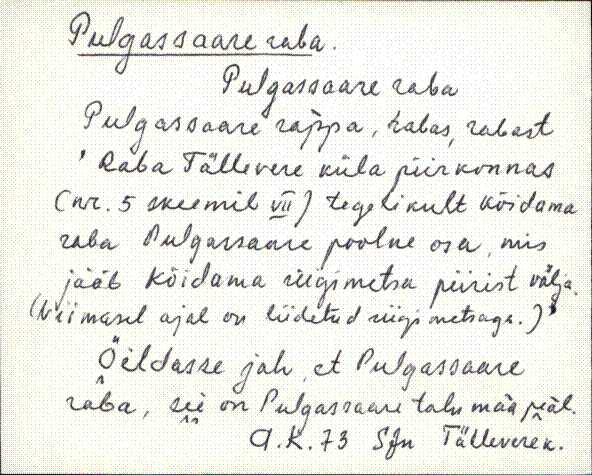 Pulgassaare raba.
Pulgassaare raba
Pulgassaare rappa, rabas, rabast
' Raba Tällevere küla piirkonnas
(nr. 5 skeemil VII) tegelikult kõidama
raba Pulgassaare poolne osa, mis
jääb kõidama riigimetsa piirist välja.
(Viimasel ajal on liidetud riigimetsaga.) '
Öeldasse jah, et Pulgassaare
raba, sie on Pulgassaare talu mää peäl.
A.K. 73 SJn Tällevere k.